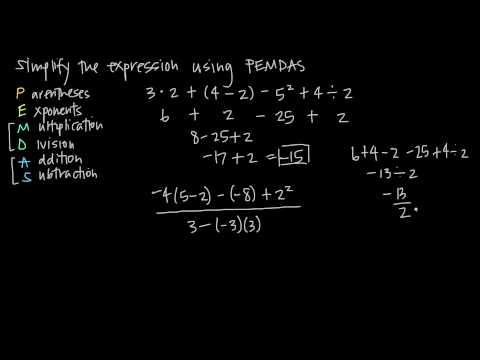 Simplify the expression using PEMDAS
Parentheses
Exponents
Multiplication
Division
Addition
Subtraction
3 · 2 + (4 - 2) - 5² + 4 ÷ 2
6 + 2 - 25 + 2
8 - 25 + 2
-17 + 2 = -15
6 + 4 - 2 - 25 + 4 ÷ 2
-13 ÷ 2
-13
2
-4(5 - 2) - (-8) + 2²
3 - (-3)(3)